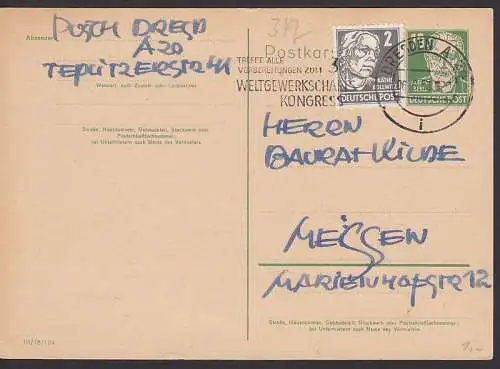 Absender:
PUSCH DRESD
A20
TEPLITZERSTR 41
Wohnort, auch Zustell- oder Leitpostamt
Straße, Hausnummer, Gebäudeteil, Stockwerk oder
Postschließfachnummer;
bei Untermietern auch Name des Vermieters
III/18/104
317
Postkarte
TREFFT ALLE
VORBEREITUNGEN ZUM 3.
WELTGEWERKSCHA
KONGRES
2
KÄTHE
KOLLWITZ
DEUTSCHE POST
DRESDEN A
i
DEUTSCHE POST
HERRN
BAURAT WILDE
MEISSEN
MARIENHOFSTR 12
Straße, Hausnummer, Gebäudeteil, Stockwerk oder Postschließfachnummer;
bei Untermietern auch Name des Vermieters
1,-